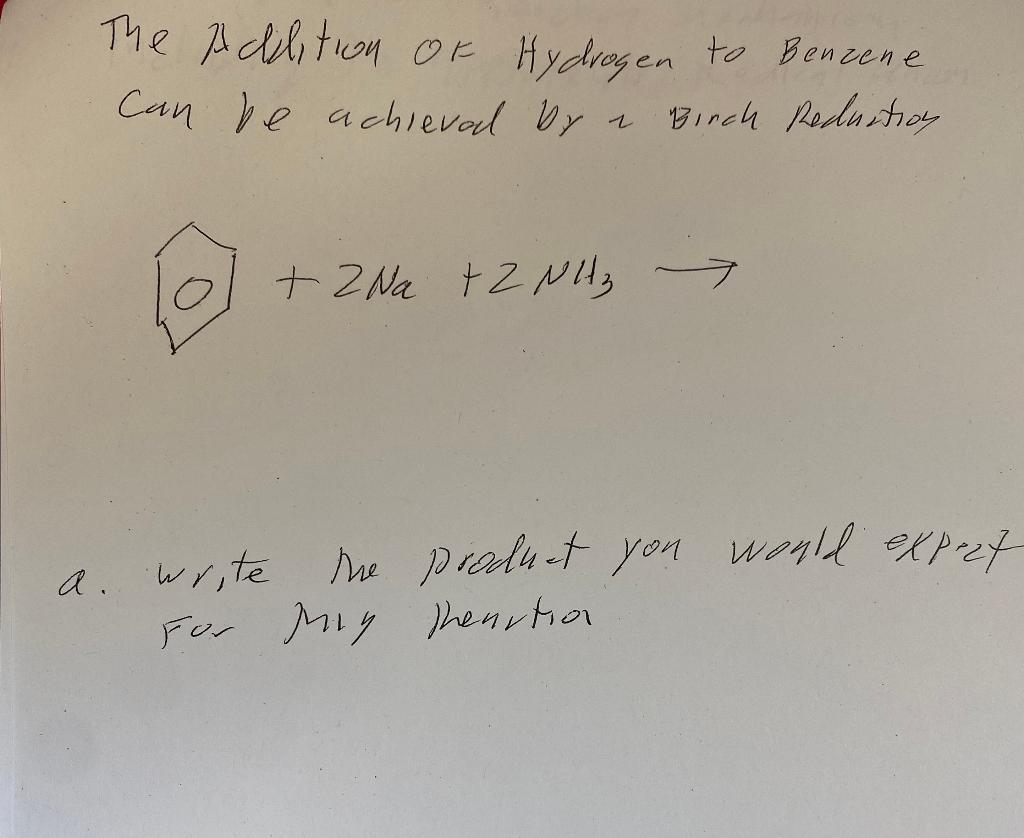 The Addition OF Hydrogen to Benzene
Can be achieved by a Birch Reduction
+ 2Na + 2 NH3 →
a. write the product you would expect
For this Reaction